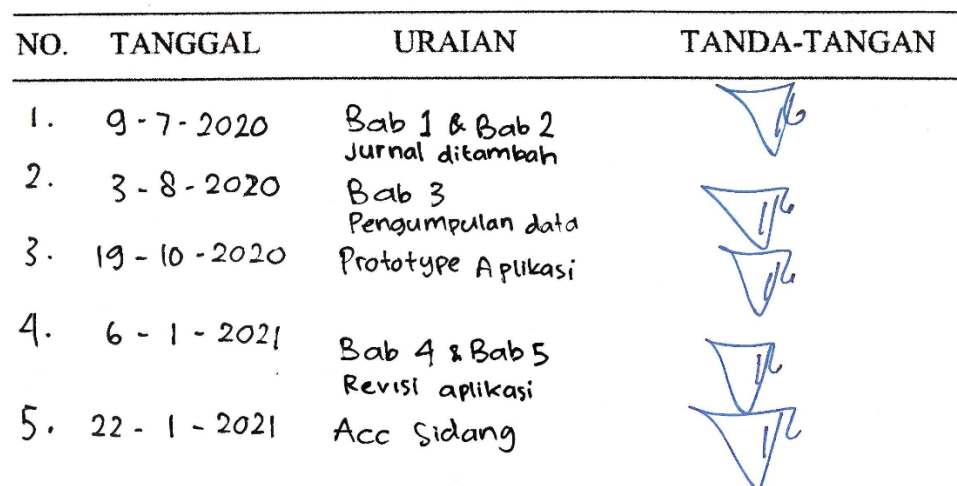 NO. TANGGAL URAIAN TANDA-TANGAN
1. 9-7-2020 Bab 1 & Bab 2
Jurnal ditambah
2. 3-8-2020 Bab 3
Pengumpulan data
3. 19-10-2020 Prototype Aplikasi
4. 6-1-2021 Bab 4 & Bab 5
Revisi aplikasi
5. 22-1-2021 Acc Sidang